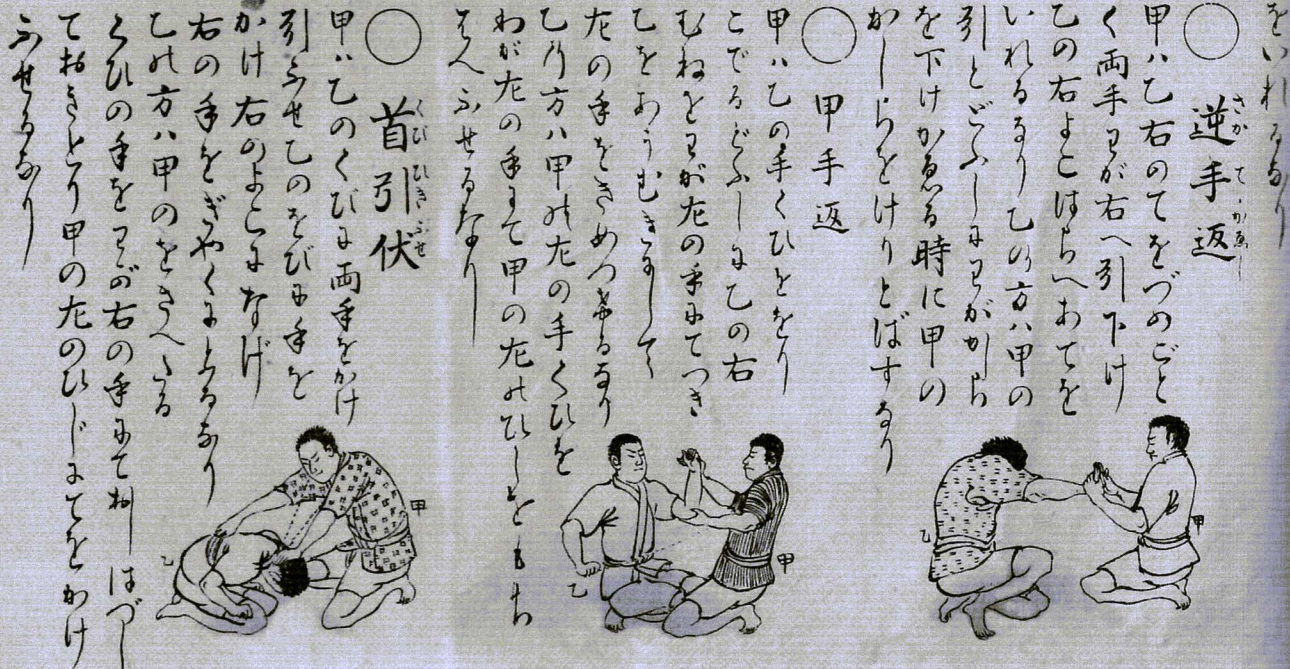 をいれるなり
○ 逆手返
さかてかゑし
甲ハ乙右のてをづのごと
く両手わが右へ引下け
乙の右よこはらへあてを
いれるなり乙の方ハ甲の
引とどふしにわがからだ
を下けかゑる時に甲の
かしらをけりとばすなり
○ 甲手返
甲ハ乙の手くひをとり
こでるどふしに乙の右
むねをわが左の手にてつき
乙をあうむきにして
左の手をきめつけるなり
乙の方ハ甲の左の手くひを
わが左の手にて甲の左のひしをもち
ふせるなり
○ 首引伏
くびひきふせ
甲ハ乙のくびに両手をかけ
引ふせ乙のをびに手を
かけ右のよこになげ
右の手をぎやくにとるなり
乙の方ハ甲のをさへたる
くひの手をわが右の手にて はづし
ておきとり甲の左のひじにてをかけ
ふせるなり
甲
乙
甲
乙
甲
乙